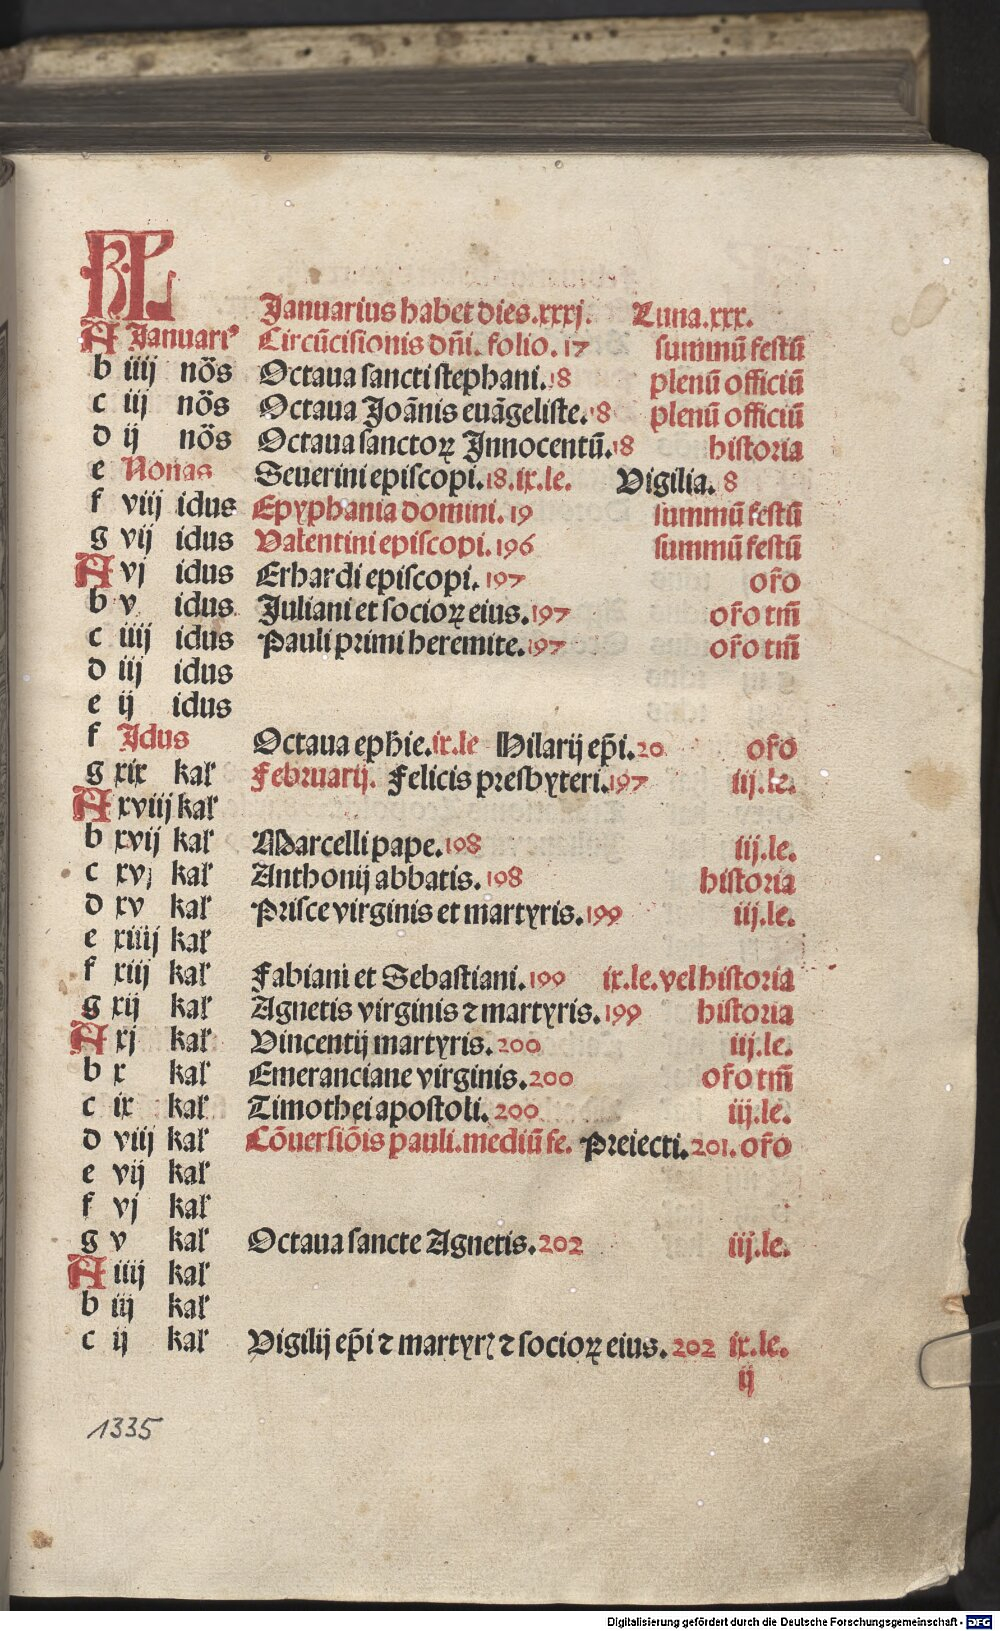 KL Januarius habet dies.xxxj. Luna.xxx.
A Januari⁹ Circũcisionis dñi. folio. 17 summũ festũ
b iiij nõs Octaua sancti stephani. 18 plenũ officiũ
c iij nõs Octaua Joãnis euãgeliste. 18 plenũ officiũ
d ij nõs Octaua sanctoꝝ Innocentũ. 18 historia
e Nonas Seuerini episcopi. 18. ix. le. Vigilia. 8
f viij idus Epyphania domini. 19 summũ festũ
g vij idus Valentini episcopi. 196 summũ festũ
A vj idus Erhardi episcopi. 197 or̃o
b v idus Juliani et socioꝝ eius. 197 or̃o tm̃
c iiij idus Pauli primi heremite. 197 or̃o tm̃
d iij idus
e ij idus
f Idus Octaua ephie. ix. le Hilarij ep̃i. 20 or̃o
g xix kal' Februarij. Felicis presbyteri. 197 iij. le.
A xviij kal'
b xvij kal' Marcelli pape. 198 iij. le.
c xvj kal' Anthonij abbatis. 198 historia
d xv kal' Prisce virginis et martyris. 199 iij. le.
e xiiij kal'
f xiij kal' Fabiani et Sebastiani. 199 ix. le. vel historia
g xij kal' Agnetis virginis ⁊ martyris. 199 historia
A xj kal' Vincentij martyris. 200 iij. le.
b x kal' Emeranciane virginis. 200 or̃o tm̃
c ix kal' Timothei apostoli. 200 iij. le.
d viij kal' Cõuersiõis pauli. mediũ fe. Preiecti. 201. or̃o
e vij kal'
f vj kal'
g v kal' Octaua sancte Agnetis. 202 iij. le.
A iiij kal'
b iij kal'
c ij kal' Vigilij ep̃i ⁊ martyrꝭ ⁊ socioꝝ eius. 202 ix. le.
ij
1335
Digitalisierung gefördert durch die Deutsche Forschungsgemeinschaft - DFG